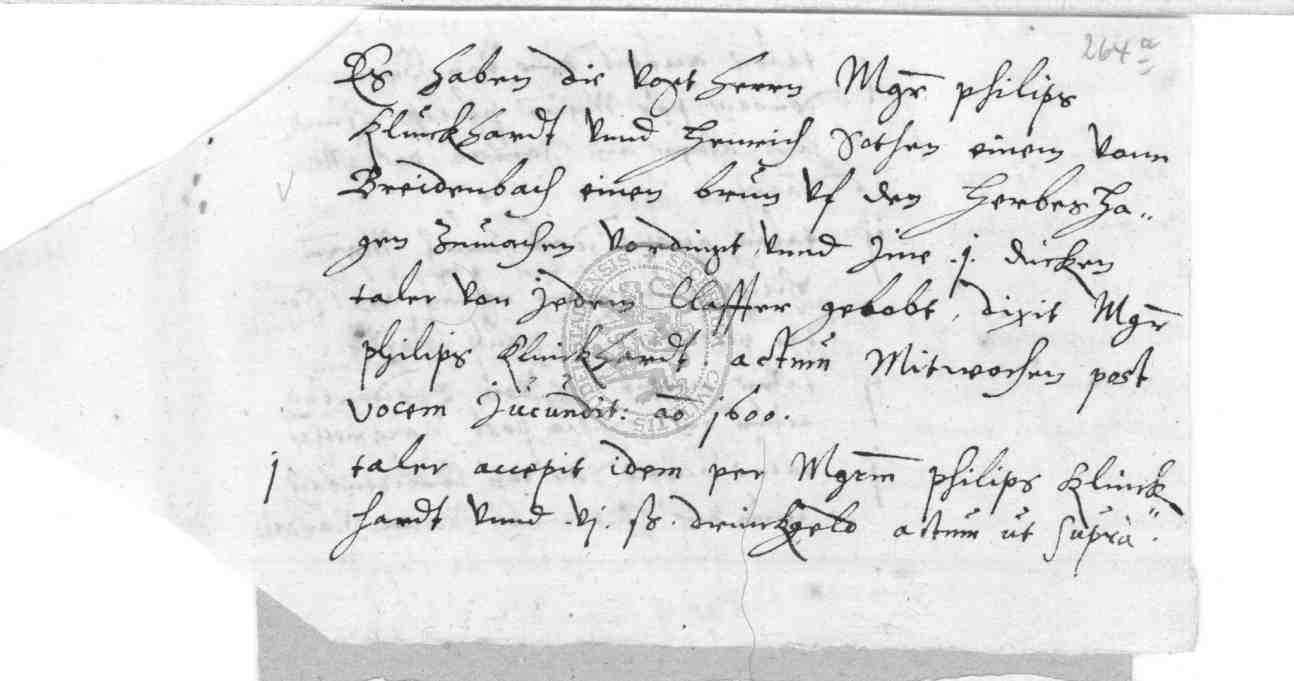 264 a
Es haben die vogt herrn Mgr philips
Klinckhardt vnnd Henrich Sothen einem vonn
Breidenbach einen brun vf den Herbesha„
gen Zumachen verdingt, vnnd Jme .j. dicken
taler von Jedem Claffter gelobt, dixit Mgr
philips Klinckhardt. actum Mitwochen post
vocem Jucundit: ao 1600.
j taler accepit idem per Mgrm philips Klinck
hardt vnnd .vj. ß. drinckgeld actum ut supra.